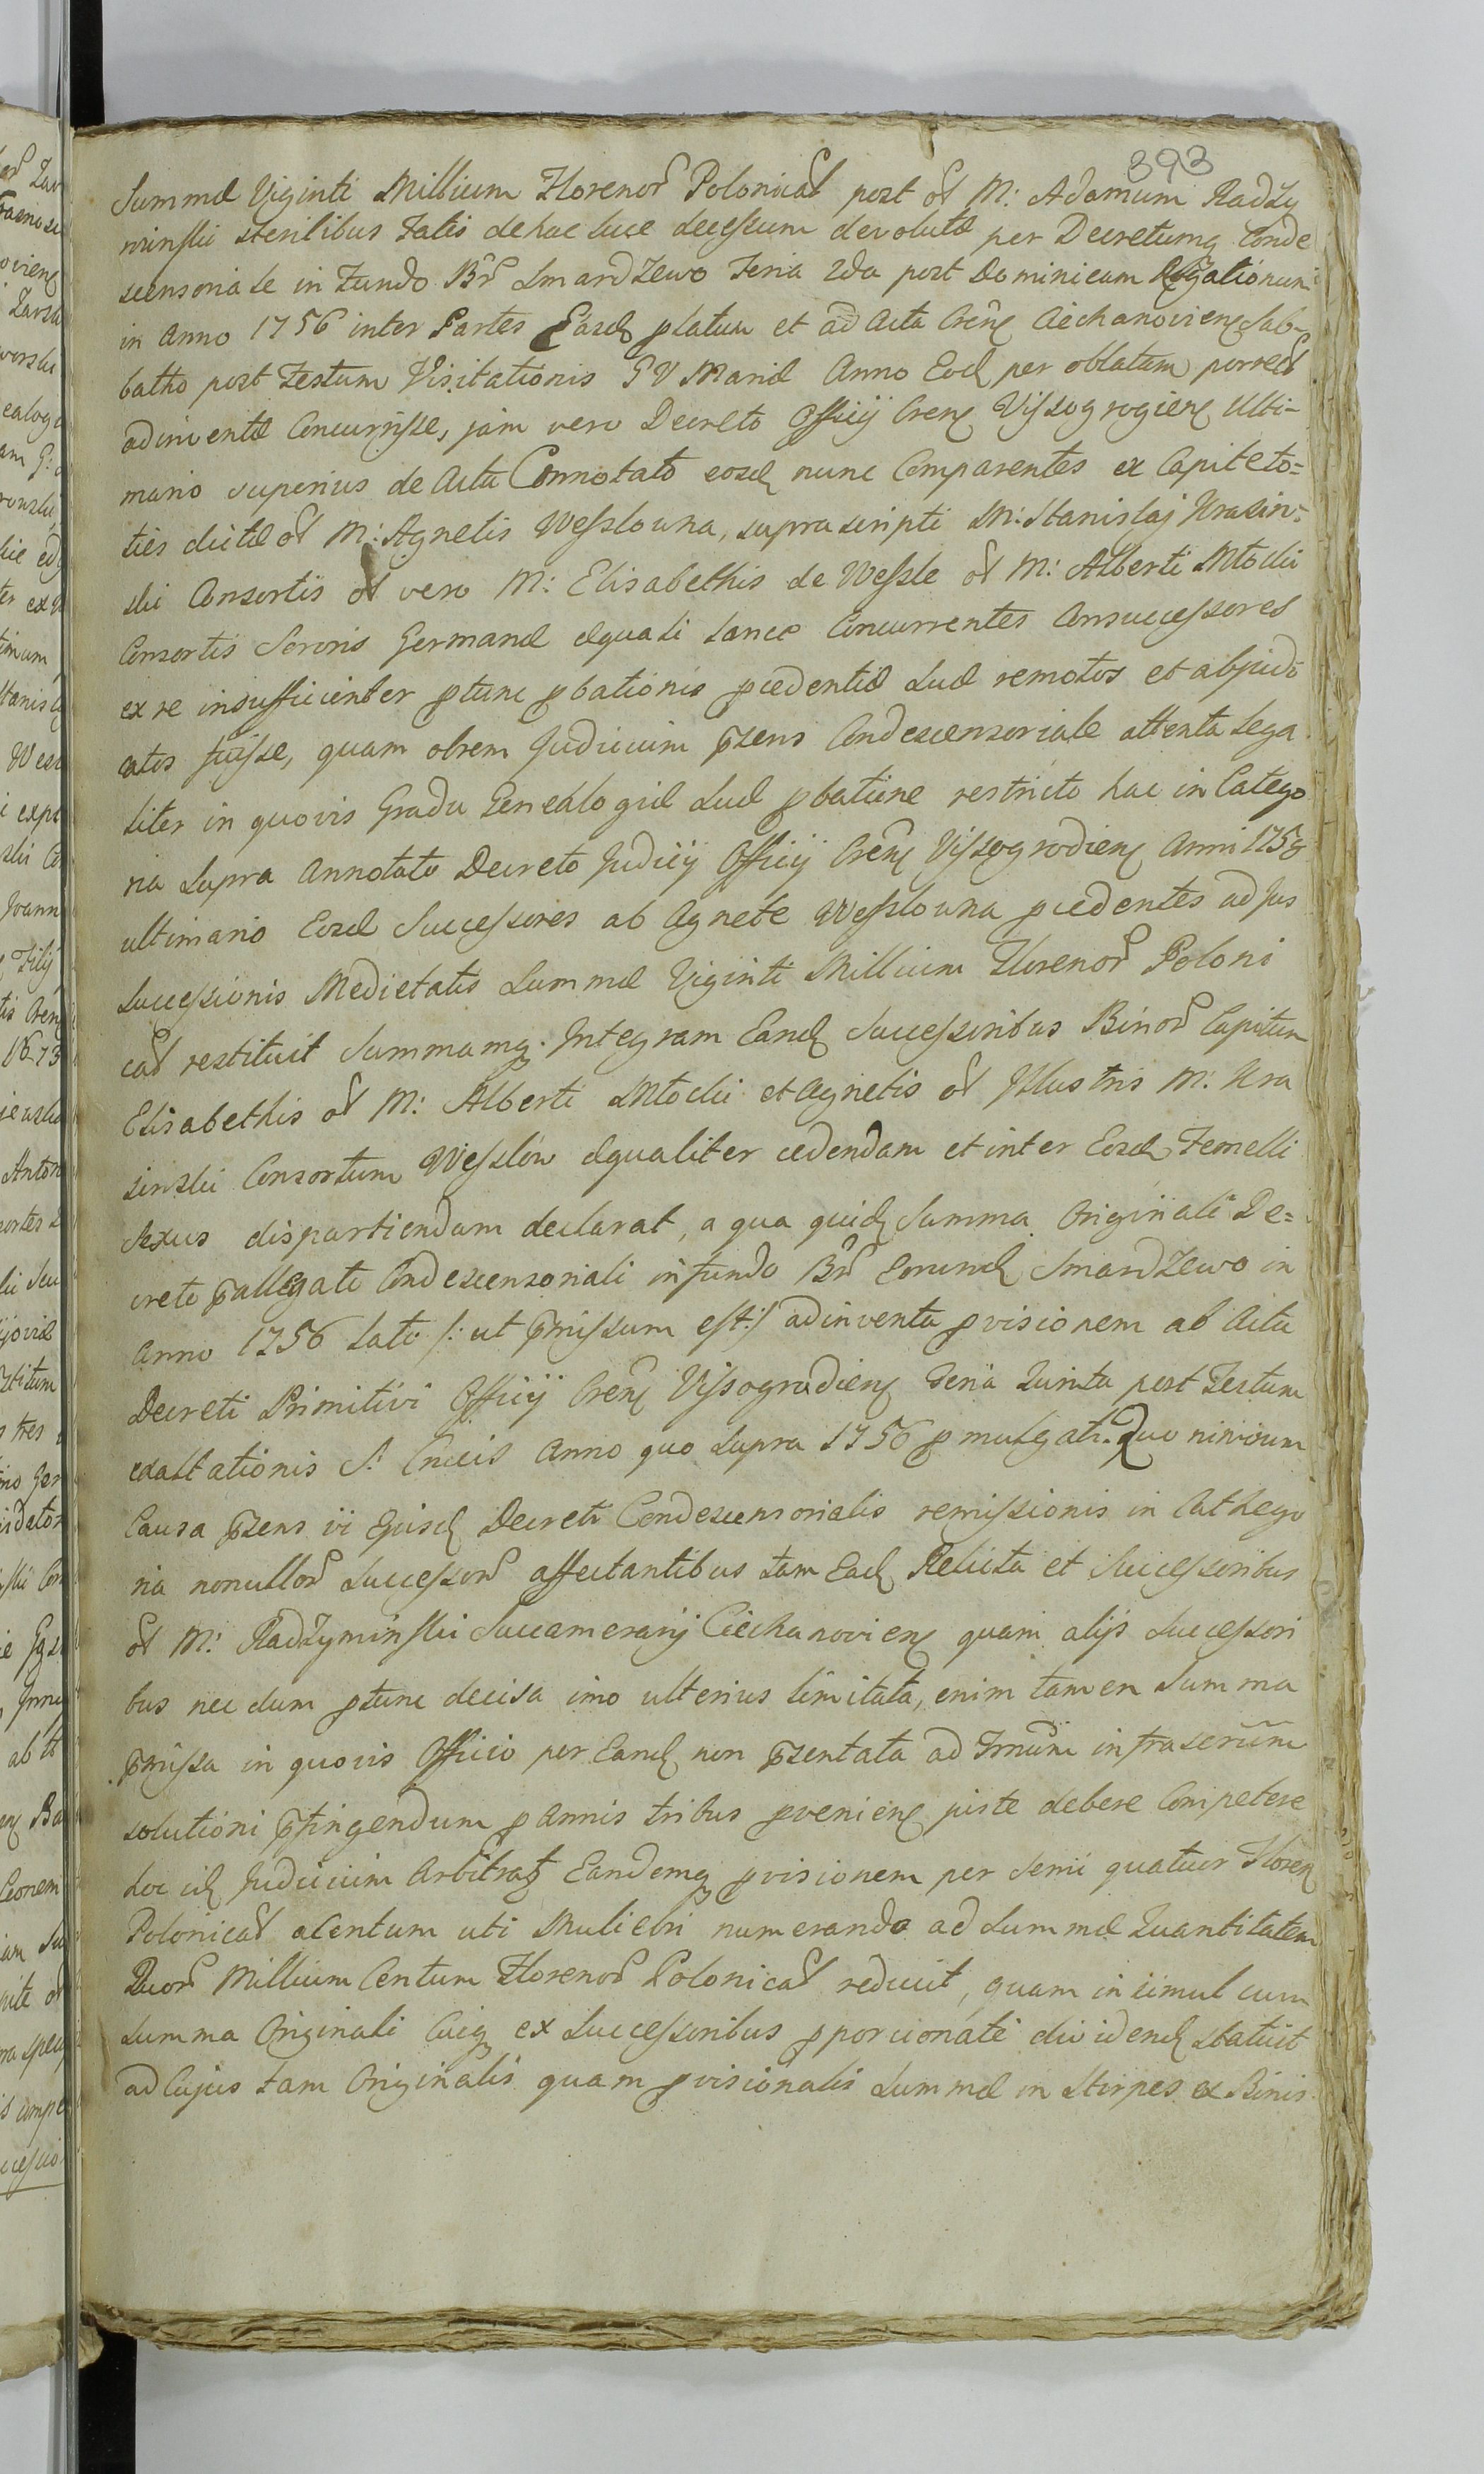 393
Summæ Viginti Millium Florenor Polonical post ol M: Adamum Radzy
minski sterilibus Fatis de hac luce decessum devolutæ per Decretumq Conde
scensoriale in Fundo Bnr Smardzewo Feria 2da post Dominicam Rogationum
in Anno 1756 inter Partes Easd platum et ad Acta Crens Ciechanoviens Sab-
batho post Festum Visitationis G V Mariæ Anno Eod per oblatam porrect
adinventæ Concurrisse, jam vero Decreto Officij Crens Vissogrogiens Ulti-
mario superius de Actu Connotato eosd nunc Comparentes ex Capite to=
ties dictæ ol M: Agnetis Wesslowna, suprascripti M: Stanislaj Krasin=
ski Consortis ol vero M: Elisabethis de Wessle ol M: Alberti Mlocki
Consortis Sororis Germanæ æquali lance Concurrentes Consuccessores
ex re insufficienter ptunc pbationis pcedentiæ suæ remotos et abjudi
catos fuisse, quam obrem Judicium pzens Condescensoriale attenta lega
liter in quovis Gradu Genealogiæ suæ pbatione restricto hac in Catego
ria supra Annotato Decreto Judicij Officij Crens Vissogrodiens Anni 1758
ultimario Eosd Successores ab Agnete Wesslowna pcedentes ad jus
Successionis Medietatis Summæ Viginti Millium Florenor Poloni
cal restituit Summamq Integram Eand Successoribus Binor Capitum
Elisabethis ol M: Alberti Mlocki et Agnetis ol Illustris M: Kra
sinski Consortum Wesslow æqualiter cedendam et inter Eosd Femelli
Sexus dispartiendam declarat, a qua quid Summa Originali De=
creto pallegato Condescensoriali in fundo Bnr Eorund Smardzewo in
Anno 1756 lato /: ut pmissum est :/ adinventa pvisionem ab Actu
Decreti Primitivi Officij Crens Vissogradiens Feria Quinta post Festum
exaltationis S: Crucis Anno quo supra 1756 pmulgati. Quo nimirum
Causa pzens vi Ejusd Decreti Condescensorialis remissionis in Cathego
ria nonullor Successor affectantibus tam Ead Relicta et Successoribus
ol M: Radzyminski Succamerarij Ciechanoviens quam alijs Successori
bus nec dum ptunc decisa imo ulterius limitata, enim tamen Summa
pmissa in quovis Officio per Eand non pzentata ad Trnum infrascrum
solutioni ptingendum p Annis tribus pveniens juste debere Competere
hoc id Judicium Arbitratq Eandemq pvisionem per Semi quatuor Floren
Polonical a Centum uti Muliebri numerando ad Summæ Quantitatem
Duor Millium Centum Florenor Polonical reducit, quam in simul cum
Summa Originali Cuiq ex Successoribus pporcionate dividend statuit
ad Cujus tam Originalis quam pvisionalis Summæ in Stirpes ex Binis